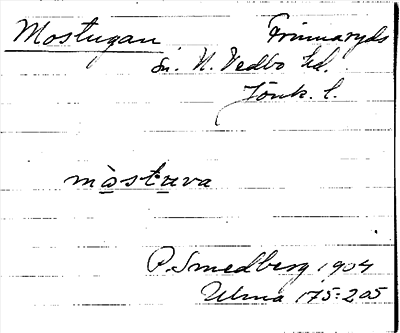 Mostugan Frinnaryds
sn. N. Vedbo hd.
Jönk. l.
màstuva
P. Smedberg 1904
Ulma 175:205